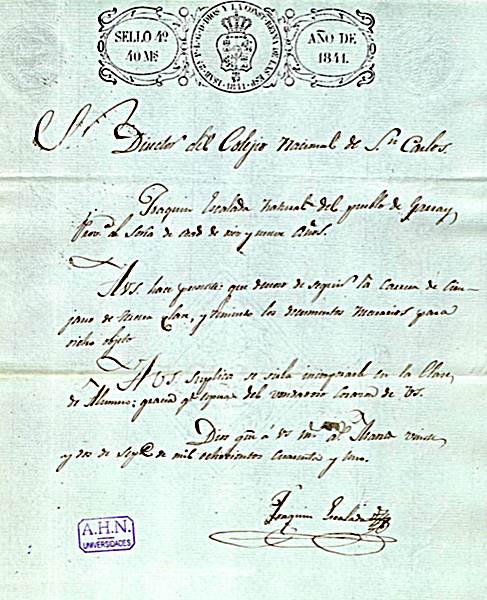 SELLO 4º
40 MS
ISAB. 2ª P. LA G. DE DIOS Y LA CONST. REYNA DE LAS ESP.
1841
AÑO DE
1841.
Sr. Director del Colejio Nacional de Sn Carlos.
Joaquin Escalada natural del pueblo de Garray,
Provª de Soria de edad de diez y nueve años.
A V.S. hace presente: que deseoso de seguir la carrera de Ciru-
jano de tercera clase, y teniendo los documentos necesarios para
dicho objeto
A V.S. suplica se sirba incorporarle en la Clase
de Alumno; gracia qe espera del vondadoso corazon de V.S.
Dios gue á V.S. ms as Madrid veinte
y dos de Sepe de mil ochocientos cuarenta y uno.
Joaquin Escalada
A.H.N.
UNIVERSIDADES